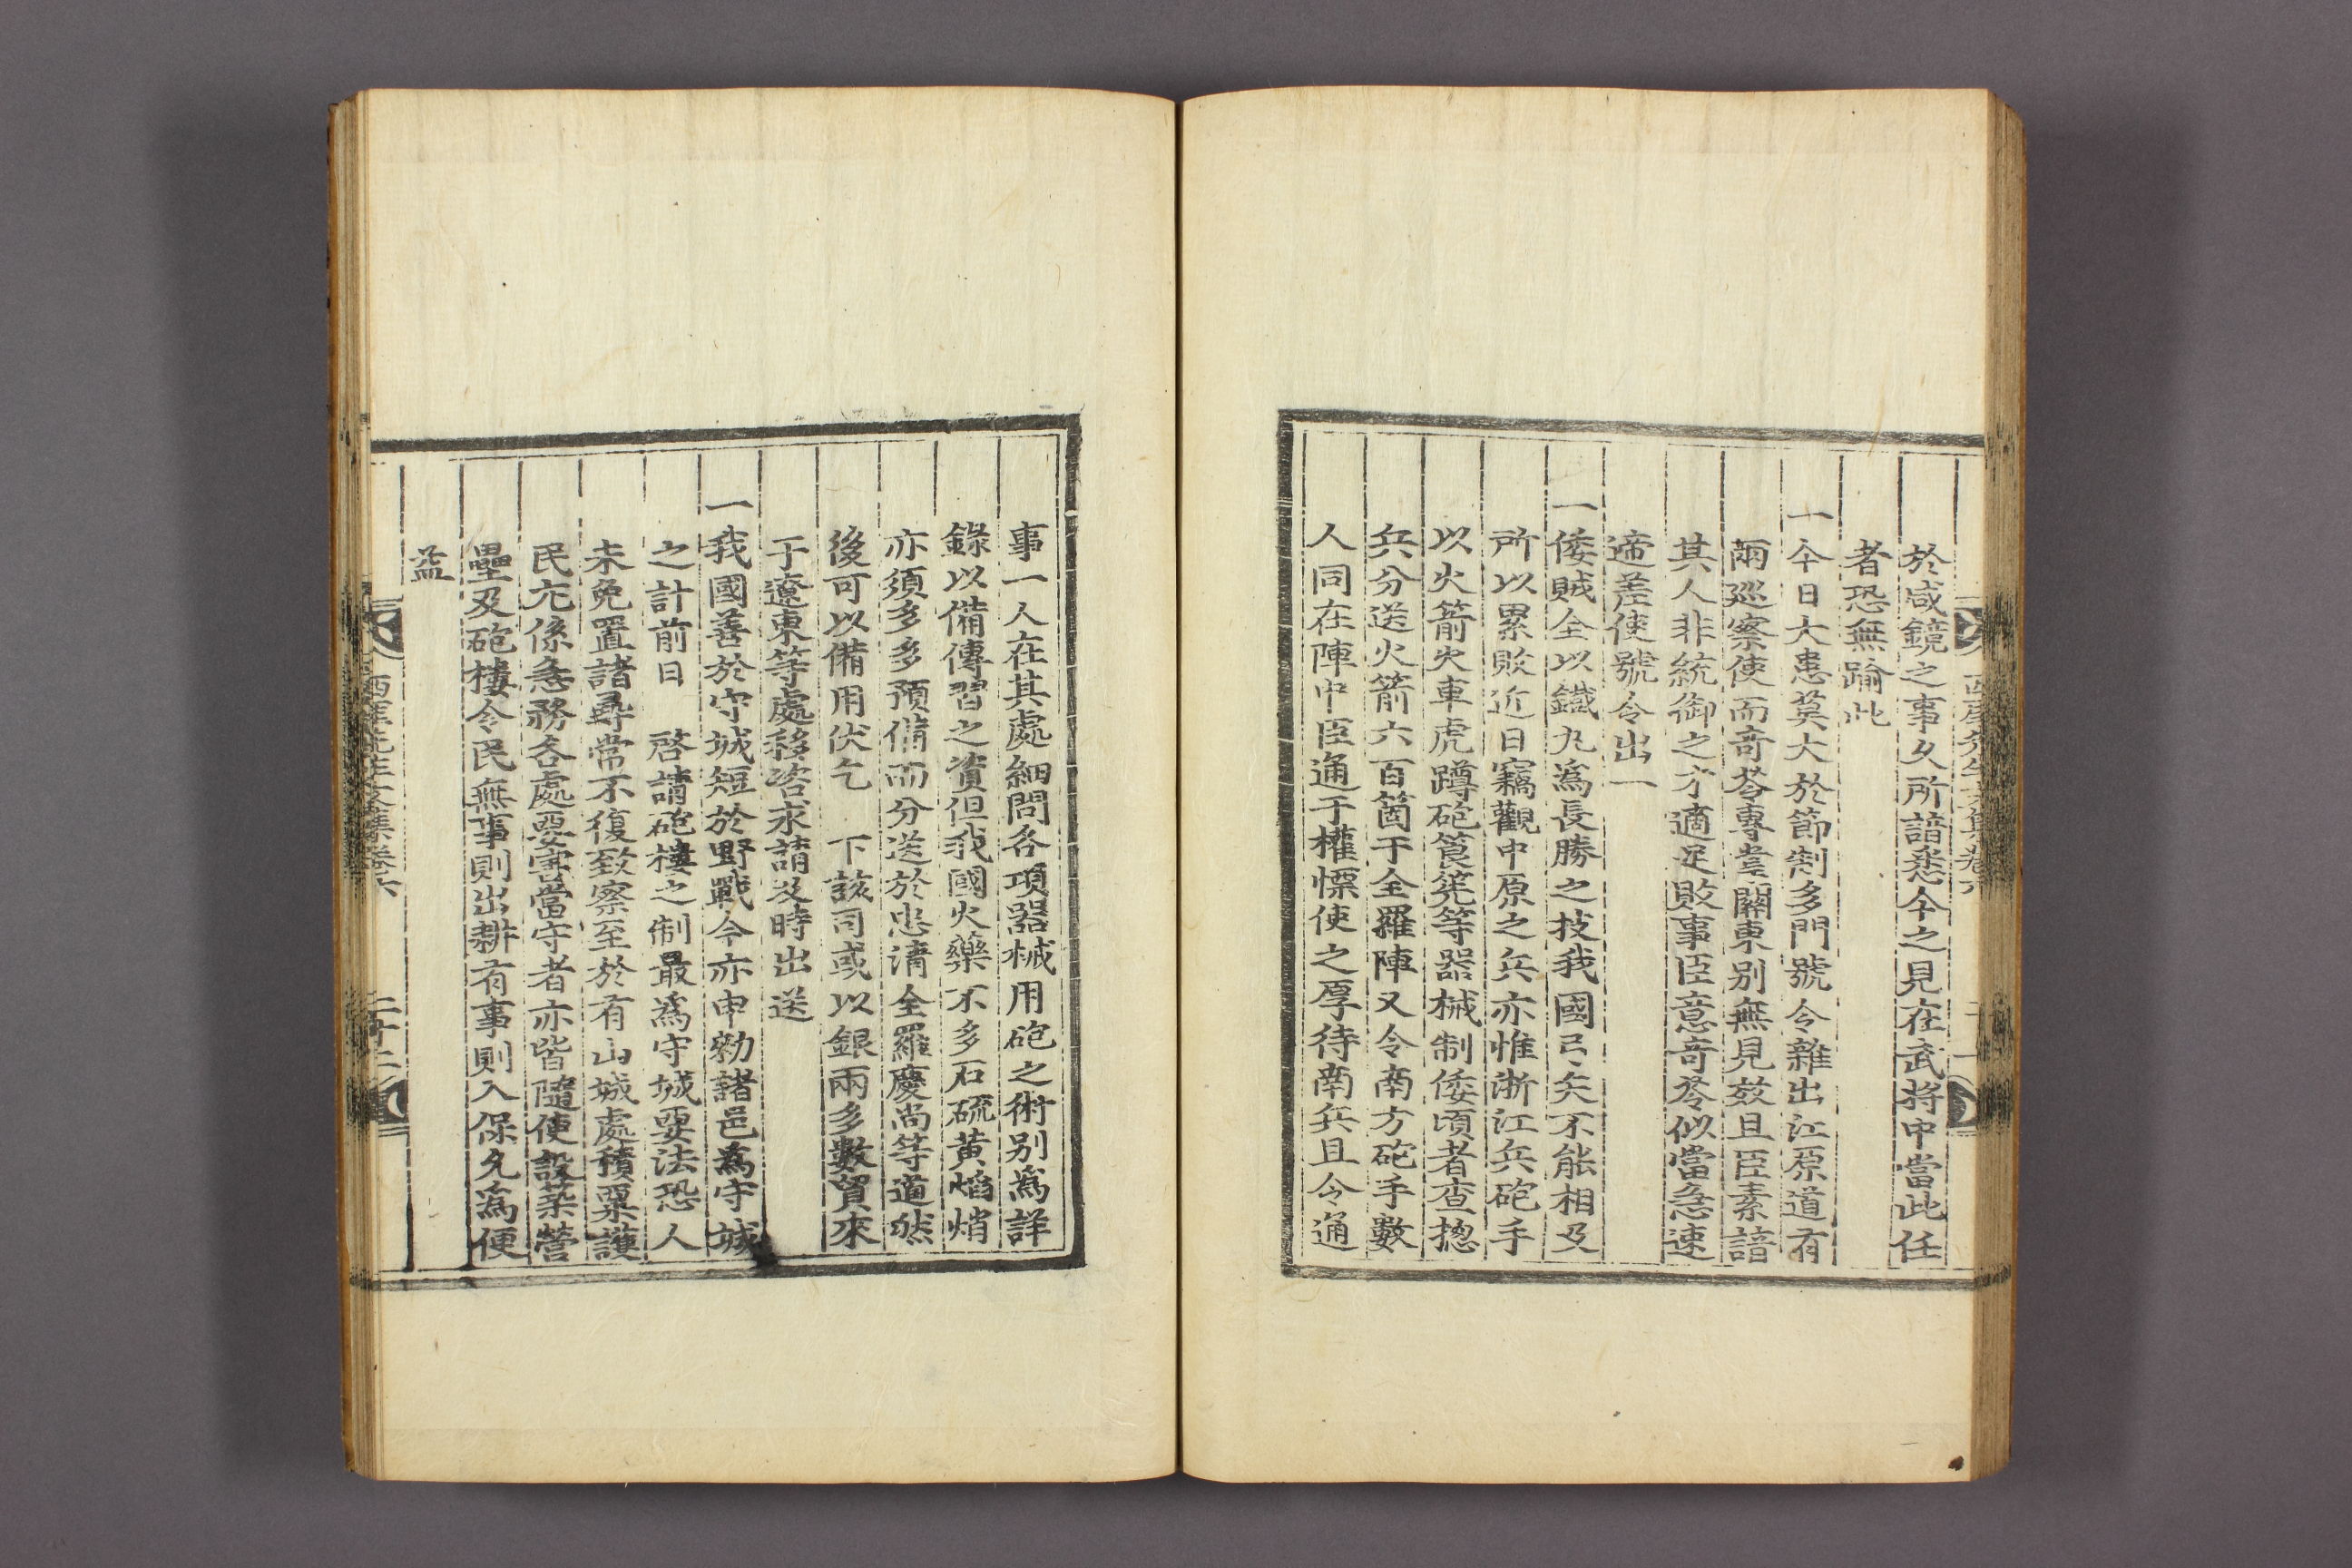 西厓先生文集卷六
於咸鏡之事久所諳悉今之見在武將中當此任
者恐無踰此
一今日大患莫大於節制多門號令雜出江原道有
兩廵察使而奇苓專掌關東別無見效且臣素諳
其人非統御之才適足敗事臣意奇苓似當急速
遞差使號令出一
一倭賊全以鐵丸爲長勝之技我國弓矢不能相及
所以累敗近日竊觀中原之兵亦惟浙江兵砲手
以火箭火車虎蹲砲筤筅等器械制倭頃者査摠
兵分送火箭六百箇于全羅陣又令南方砲手數
人同在陣中臣通于權慄使之厚待南兵且令通
事一人在其處細問各項器械用砲之術別爲詳
錄以備傳習之資但我國火藥不多石硫黃焰焇
亦須多多預備而分送於忠淸全羅慶尙等道然
後可以備用伏乞　下該司或以銀兩多數貿來
于遼東等處移咨求請及時出送
一我國善於守城短於野戰今亦申勑諸邑爲守城
之計前日　啓請砲樓之制最爲守城要法恐人
未免置諸尋常不復致察至於有山城處積粟護
民尤係急務各處要害當守者亦皆隨便設築營
壘及砲樓令民無事則出耕有事則入保允爲便
益
西厓先生文集卷六　二十二